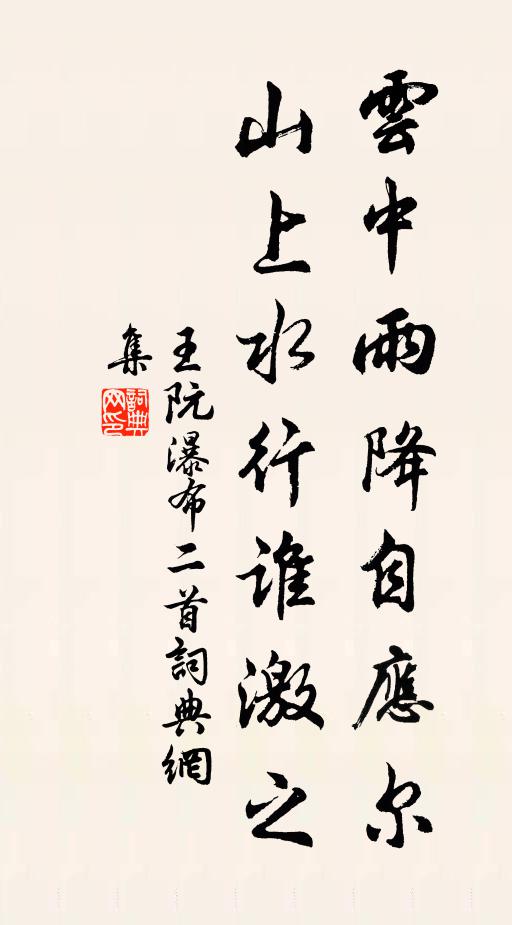 雲中雨降自應尔
山上水行誰激之
王阮瀑布二首詞典網
集
詞典
网印